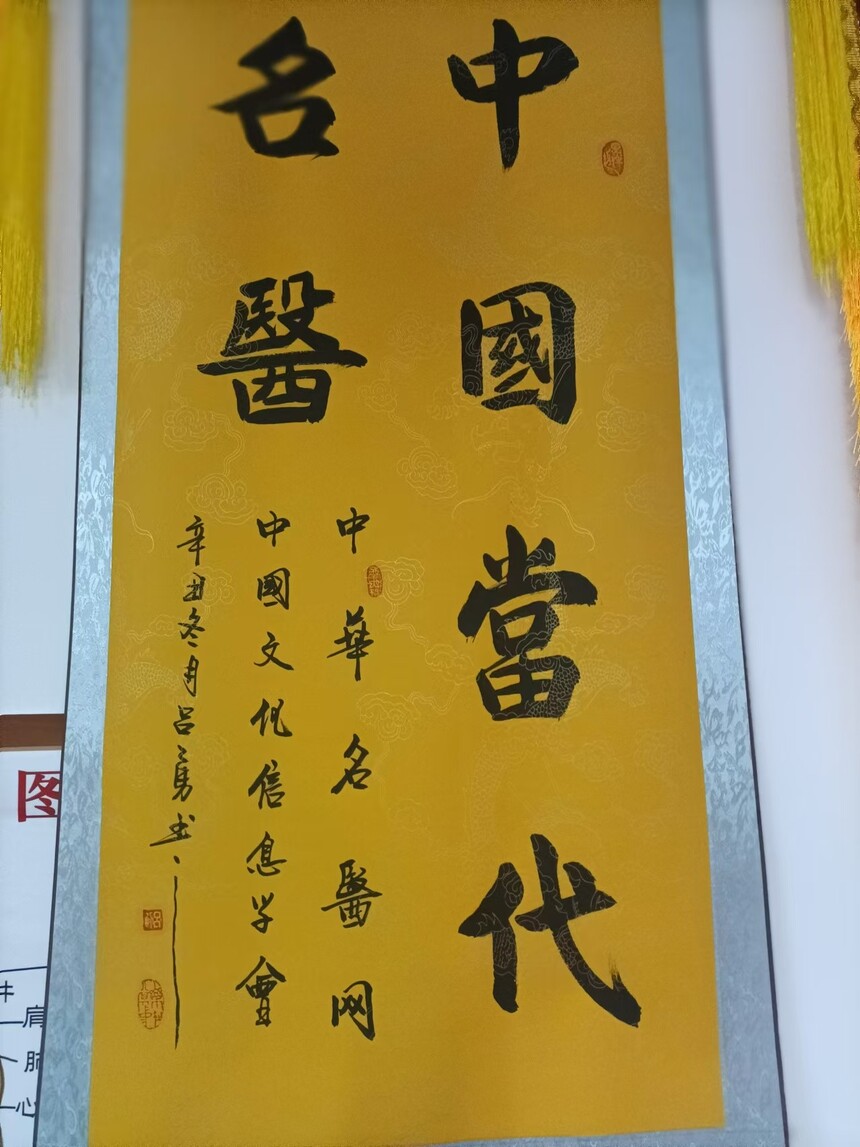 中國當代
名醫
中華名醫网
中國文化信息学會
辛丑冬月吕勇书
图
井
肩
肺
心